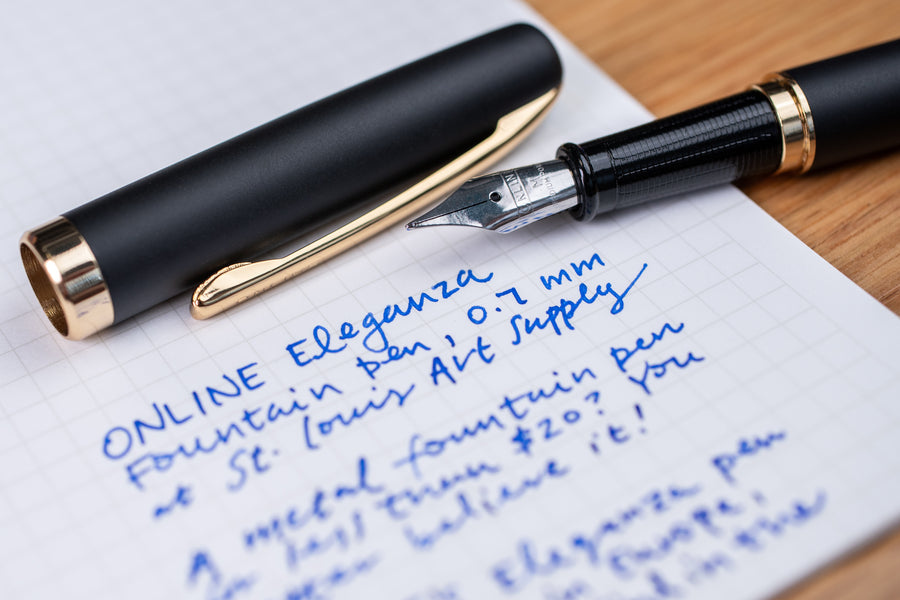 ONLINE Eleganza
Fountain pen, 0.7 mm
at St. Louis Art Supply
A metal fountain pen
for less than $20? You
better believe it!
Eleganza pen
in Europe,
in the